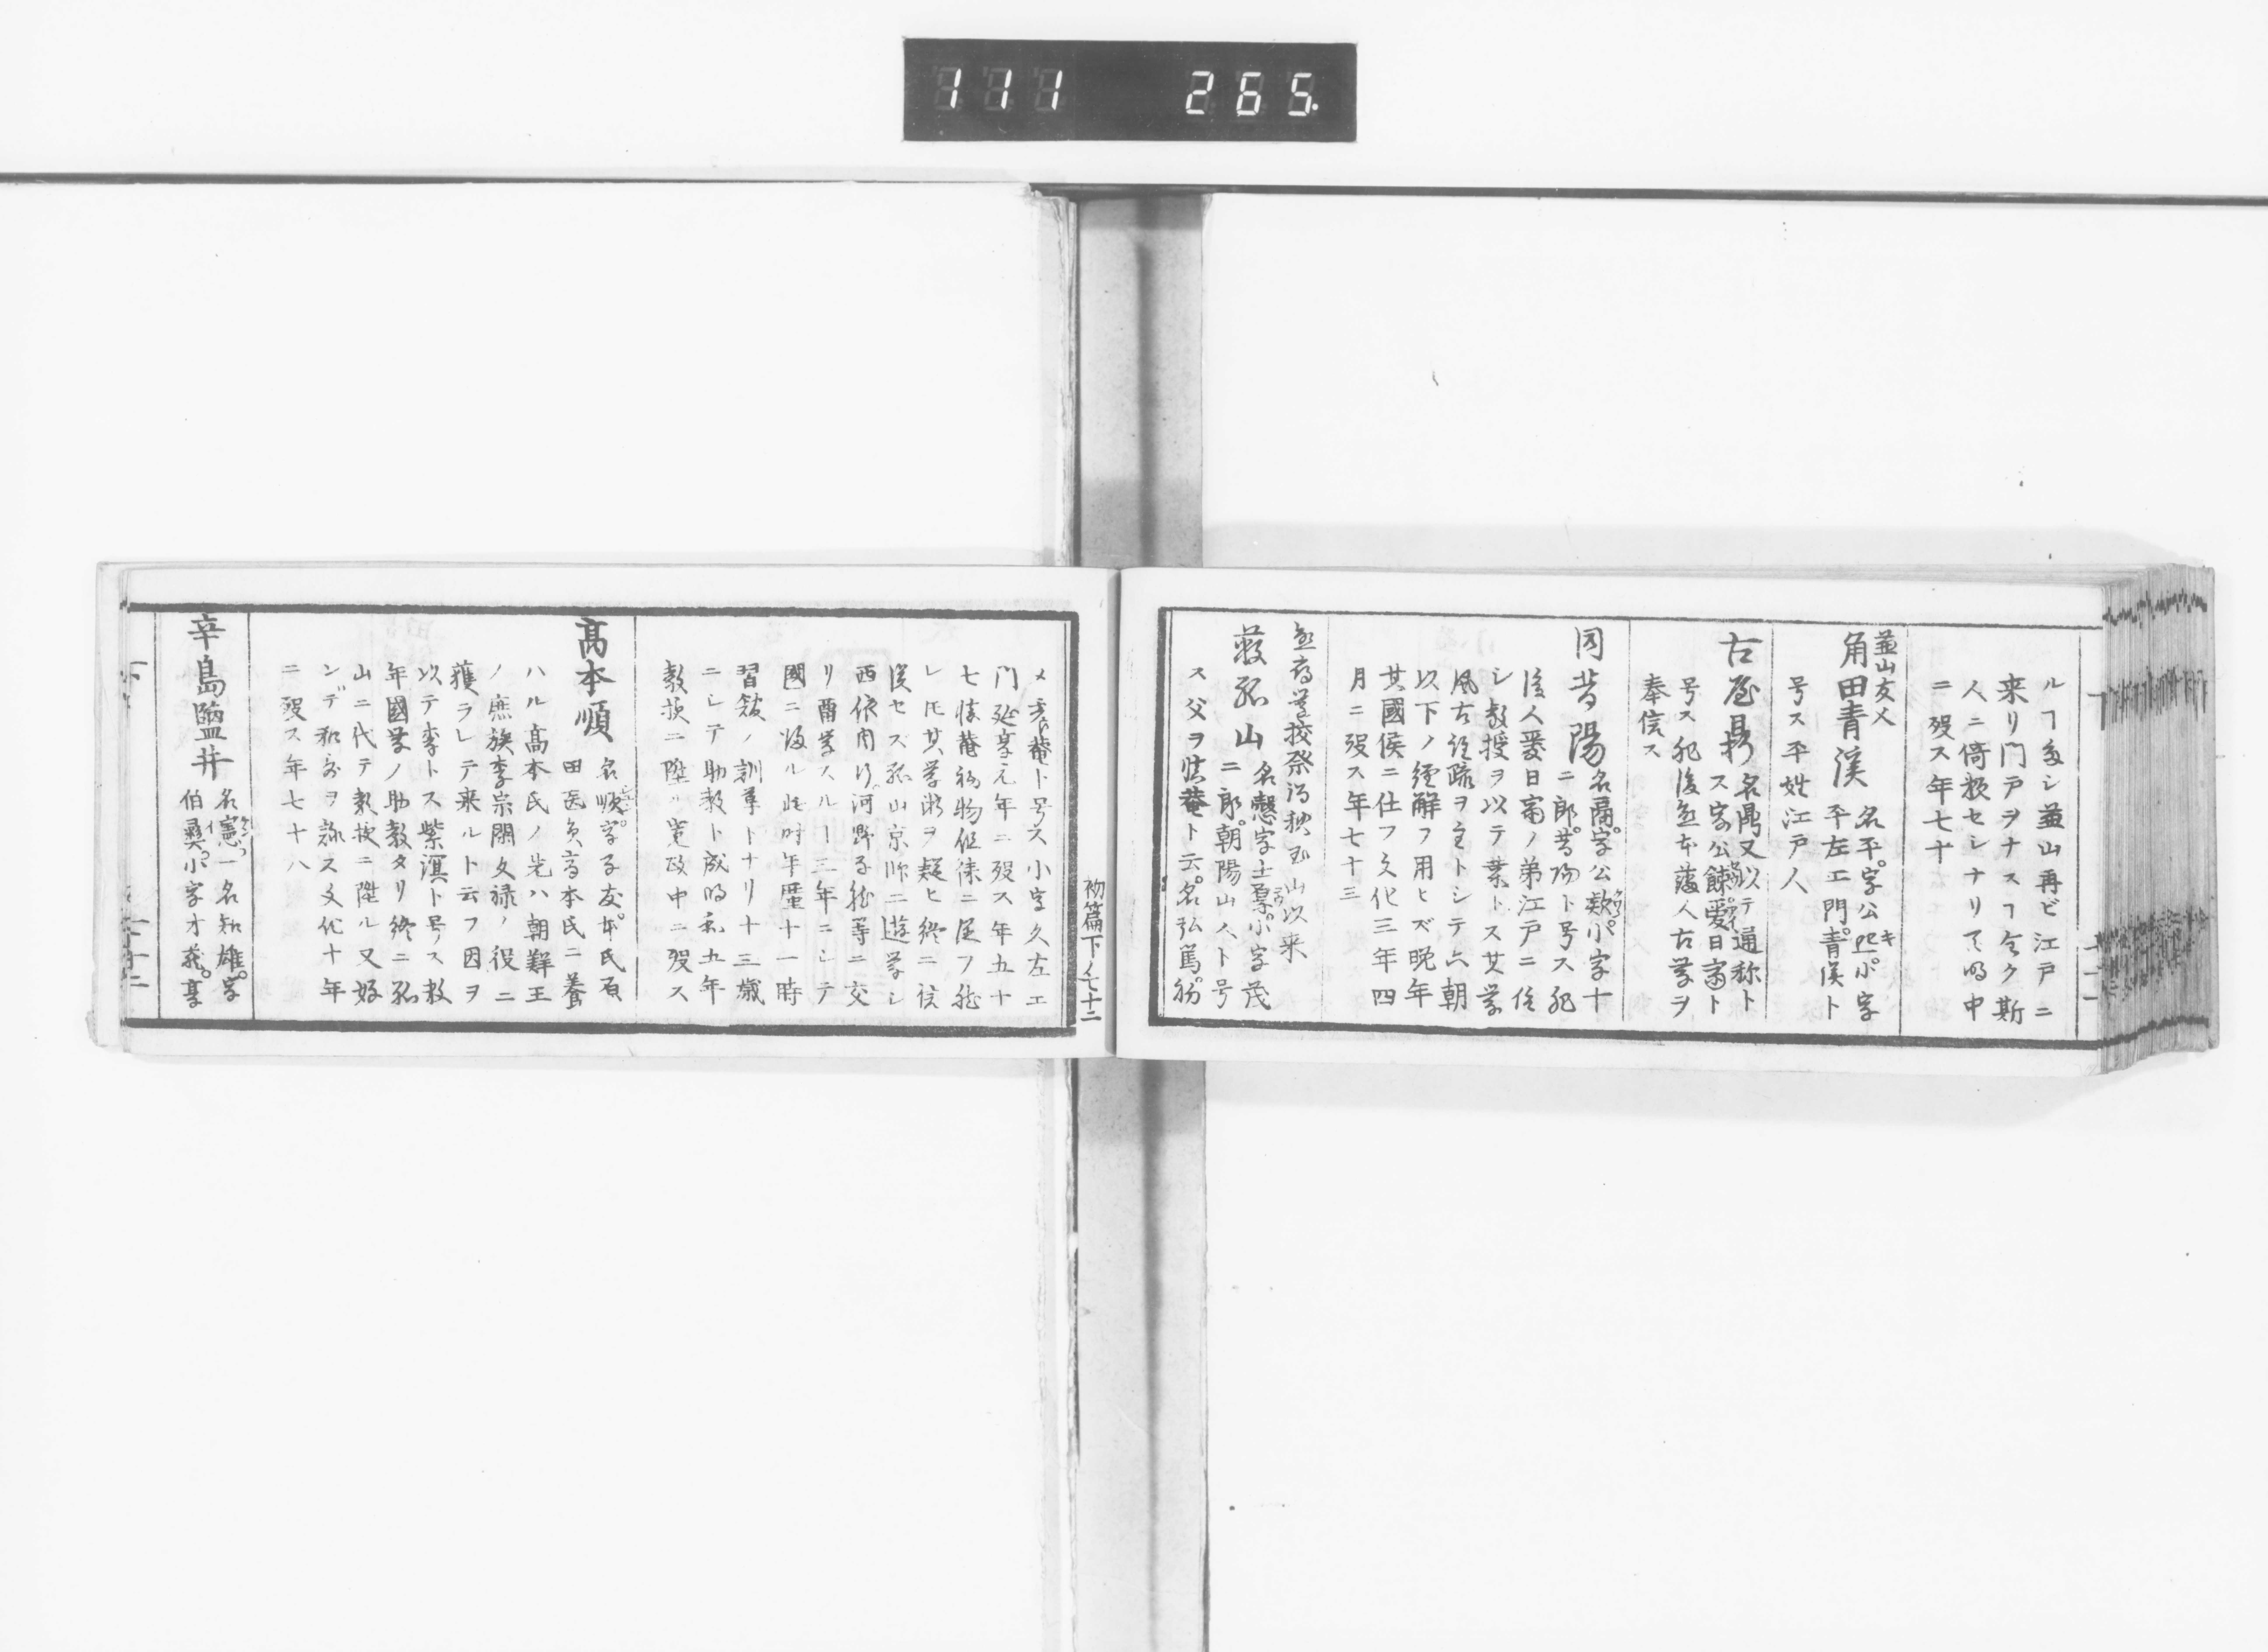 111 265.
ルヿ多シ並山再ビ江戸ニ
来リ門戸ヲナスヿ全ク斯
人ニ倚頼セシナリ天明中
ニ歿ス年七十
並山友メ
角田青溪 名平字公煕小字
平左エ門青溪ト
号ス平姓江戸人
古屋鬲 名鬲又以テ通称ト
ス字公餗愛日斎ト
号ス肥後熊本藩人古学ヲ
奉信ス
同昔陽 名鬲字公款小字十
二郎昔陽ト号ス肥
後人愛日斎ノ弟江戸ニ住
シ教授ヲ以テ業トス其学
風古註疏ヲ主トシテ六朝
以下ノ經解フ用ヒズ晩年
其國侯ニ仕フ文化三年四
月ニ歿ス年七十三
熊府学校祭酒秋玉山以来
薮孤山 名愨字士厚小字茂
二郎朝陽山人ト号
ス父ヲ慎菴ト云名弘篤初
初篇下ノ七十二
メ震菴ト号ス小字久左エ
門延享元年ニ歿ス年五十
七慎菴初物徂徠ニ従フ然
レ𪜈其学術ヲ疑ヒ終ニ信
従セス孤山京师ニ遊学シ
西依周行河野子龍等ニ交
リ留学スルヿ三年ニシテ
國ニ皈ル此时年廑十一時
習館ノ訓導トナリ十三歳
ニシテ助教ト成明和五年
教授ニ陞ル寛政中ニ歿ス
高本順 名順字子友本氏原
田医員高本氏ニ養
ハル高本氏ノ先ハ朝鮮王
ノ庶族李宗閑文禄ノ役ニ
獲ラレテ来ルト云フ因ヲ
以テ李トス紫溟ト号ス数
年國学ノ助教タリ終ニ孤
山ニ代テ教授ニ陞ル又好
ンデ和哥ヲ詠ス文化十年
ニ歿ス年七十八
辛島鹽井 名憲一名知雄字
伯彛小字才蔵亭